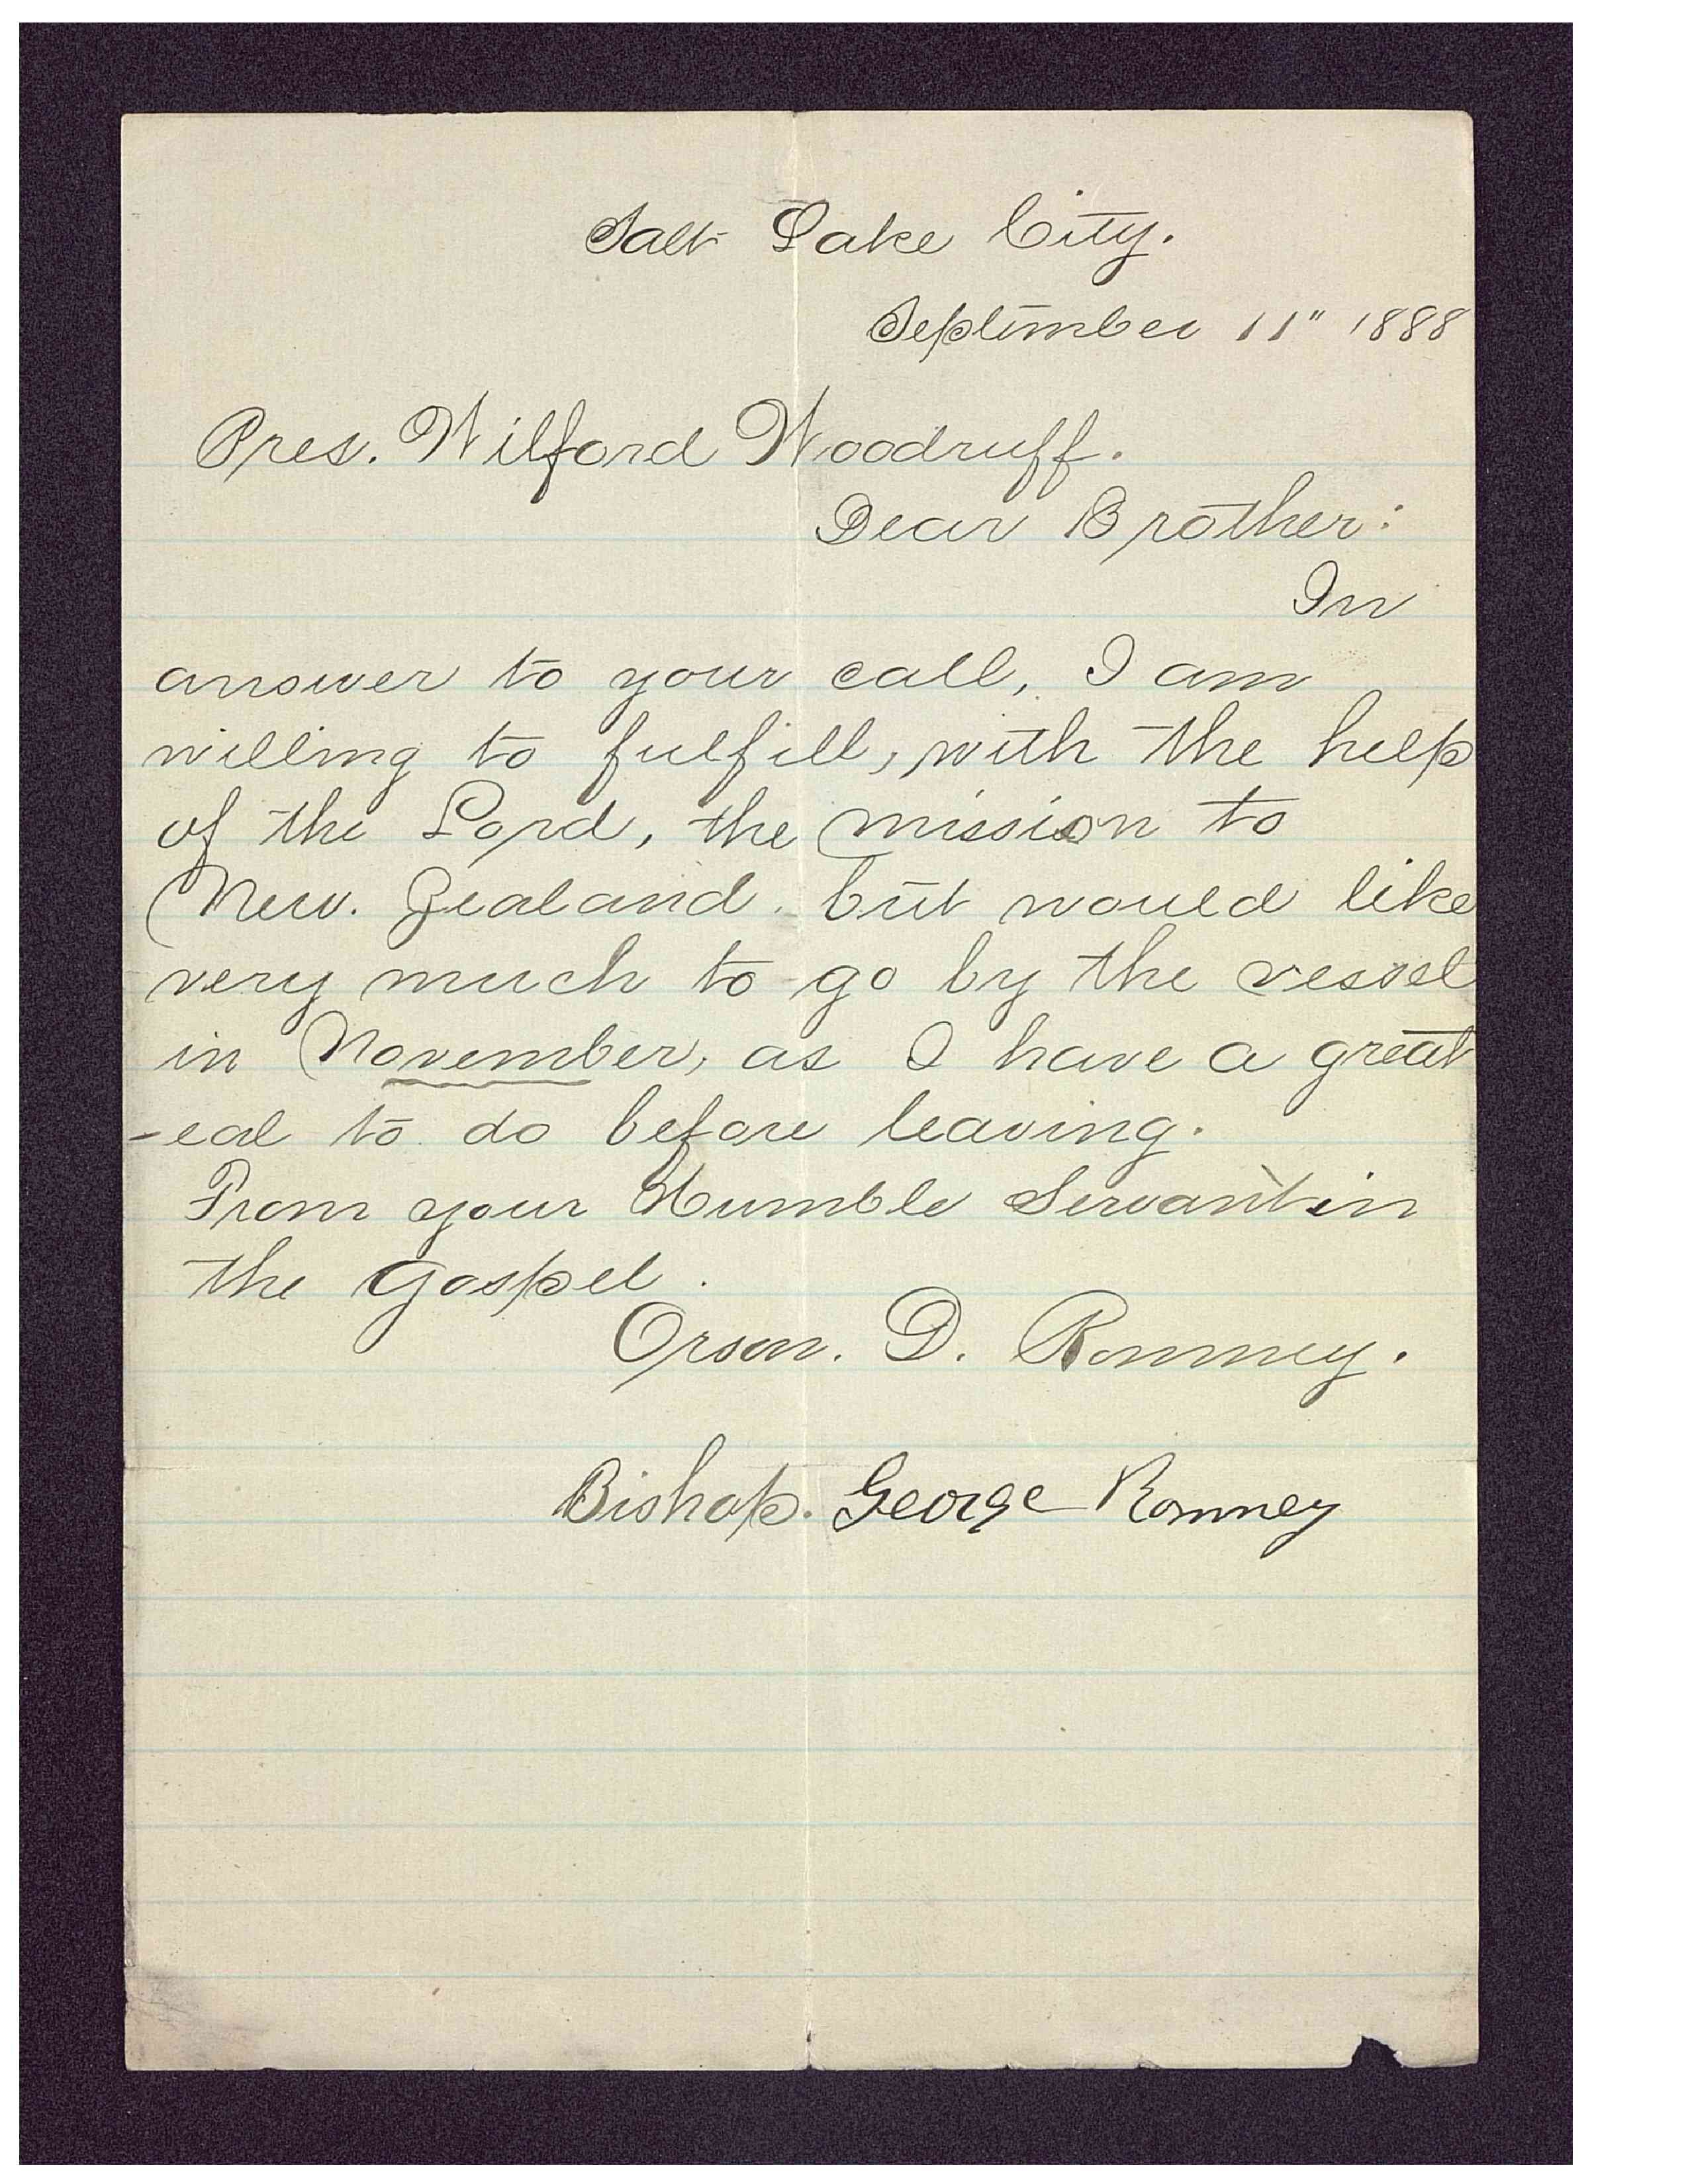 Salt Lake City.
September 11" 1888
Pres. Wilford Woodruff.
Dear Brother:
In
answer to your call, I am
willing to fulfill, with the help
of the Lord, the mission to
New. Zealand. but would like
very much to go by the vessel
in November, as I have a great
-eal to do before leaving.
From your Humble Servant in
the Gospel.
Orson. D. Romney.
Bishop. George Romney